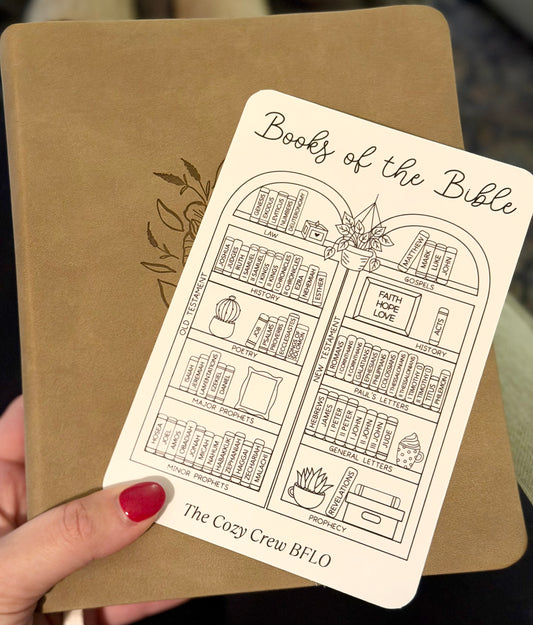 Books of the Bible
OLD TESTAMENT
GENESIS
EXODUS
LEVITICUS
NUMBERS
DEUTERONOMY
LAW
JOSHUA
JUDGES
RUTH
I SAMUEL
II SAMUEL
I KINGS
II KINGS
I CHRONICLES
II CHRONICLES
EZRA
NEHEMIAH
ESTHER
HISTORY
JOB
PSALMS
PROVERBS
ECCLESIASTES
SONG OF SOLOMON
POETRY
ISAIAH
JEREMIAH
LAMENTATIONS
EZEKIEL
DANIEL
MAJOR PROPHETS
HOSEA
JOEL
AMOS
OBADIAH
JONAH
MICAH
NAHUM
HABAKKUK
ZEPHANIAH
HAGGAI
ZECHARIAH
MALACHI
MINOR PROPHETS
NEW TESTAMENT
MATTHEW
MARK
LUKE
JOHN
GOSPELS
FAITH
HOPE
LOVE
ACTS
HISTORY
ROMANS
I CORINTHIANS
II CORINTHIANS
GALATIANS
EPHESIANS
PHILIPPIANS
COLOSSIANS
I THESSALONIANS
II THESSALONIANS
I TIMOTHY
II TIMOTHY
TITUS
PHILEMON
PAUL'S LETTERS
HEBREWS
JAMES
I PETER
II PETER
I JOHN
II JOHN
III JOHN
JUDE
GENERAL LETTERS
REVELATIONS
PROPHECY
The Cozy Crew BFLO